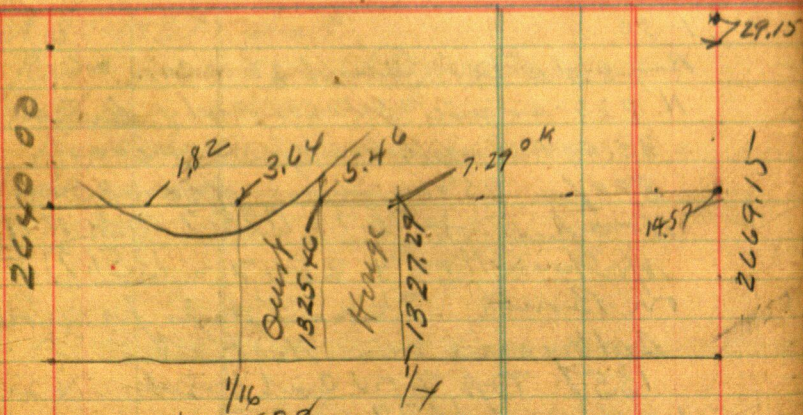 29.15
2640.00
1.82
3.64
5.46
7.29 OK
14.57
2669.15
1325.46
1327.29
1/16
1/4